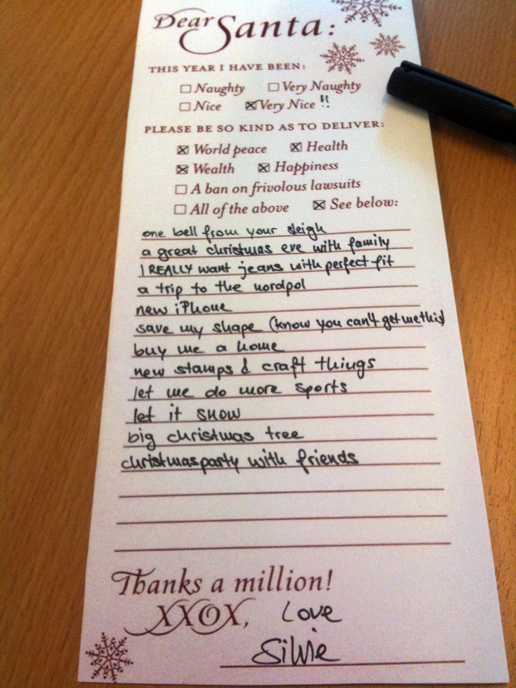 Dear Santa:
THIS YEAR I HAVE BEEN:
☐ Naughty ☐ Very Naughty
☐ Nice ☒ Very Nice !!
PLEASE BE SO KIND AS TO DELIVER:
☒ World peace ☒ Health
☒ Wealth ☒ Happiness
☐ A ban on frivolous lawsuits
☐ All of the above ☒ See below:
one bell from your sleigh
a great christmas eve with family
I REALLY want jeans with perfect fit
a trip to the nordpol
new iPhone
save my shape (know you can't get me this)
buy me a home
new stamps & craft things
let me do more sports
let it snow
big christmas tree
christmasparty with friends
Thanks a million!
XXOX, Love
Silvie